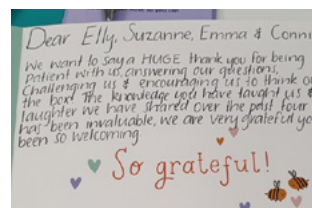 Dear Elly, Suzanne, Emma & Conni
We want to say a HUGE thank you for being
patient with us, answering our questions,
Challenging us & encouraging us to think o
the box! The knowledge you have taught us &
laughter we have shared over the past four
has been invaluable, we are very grateful yo
been so welcoming.
So grateful!